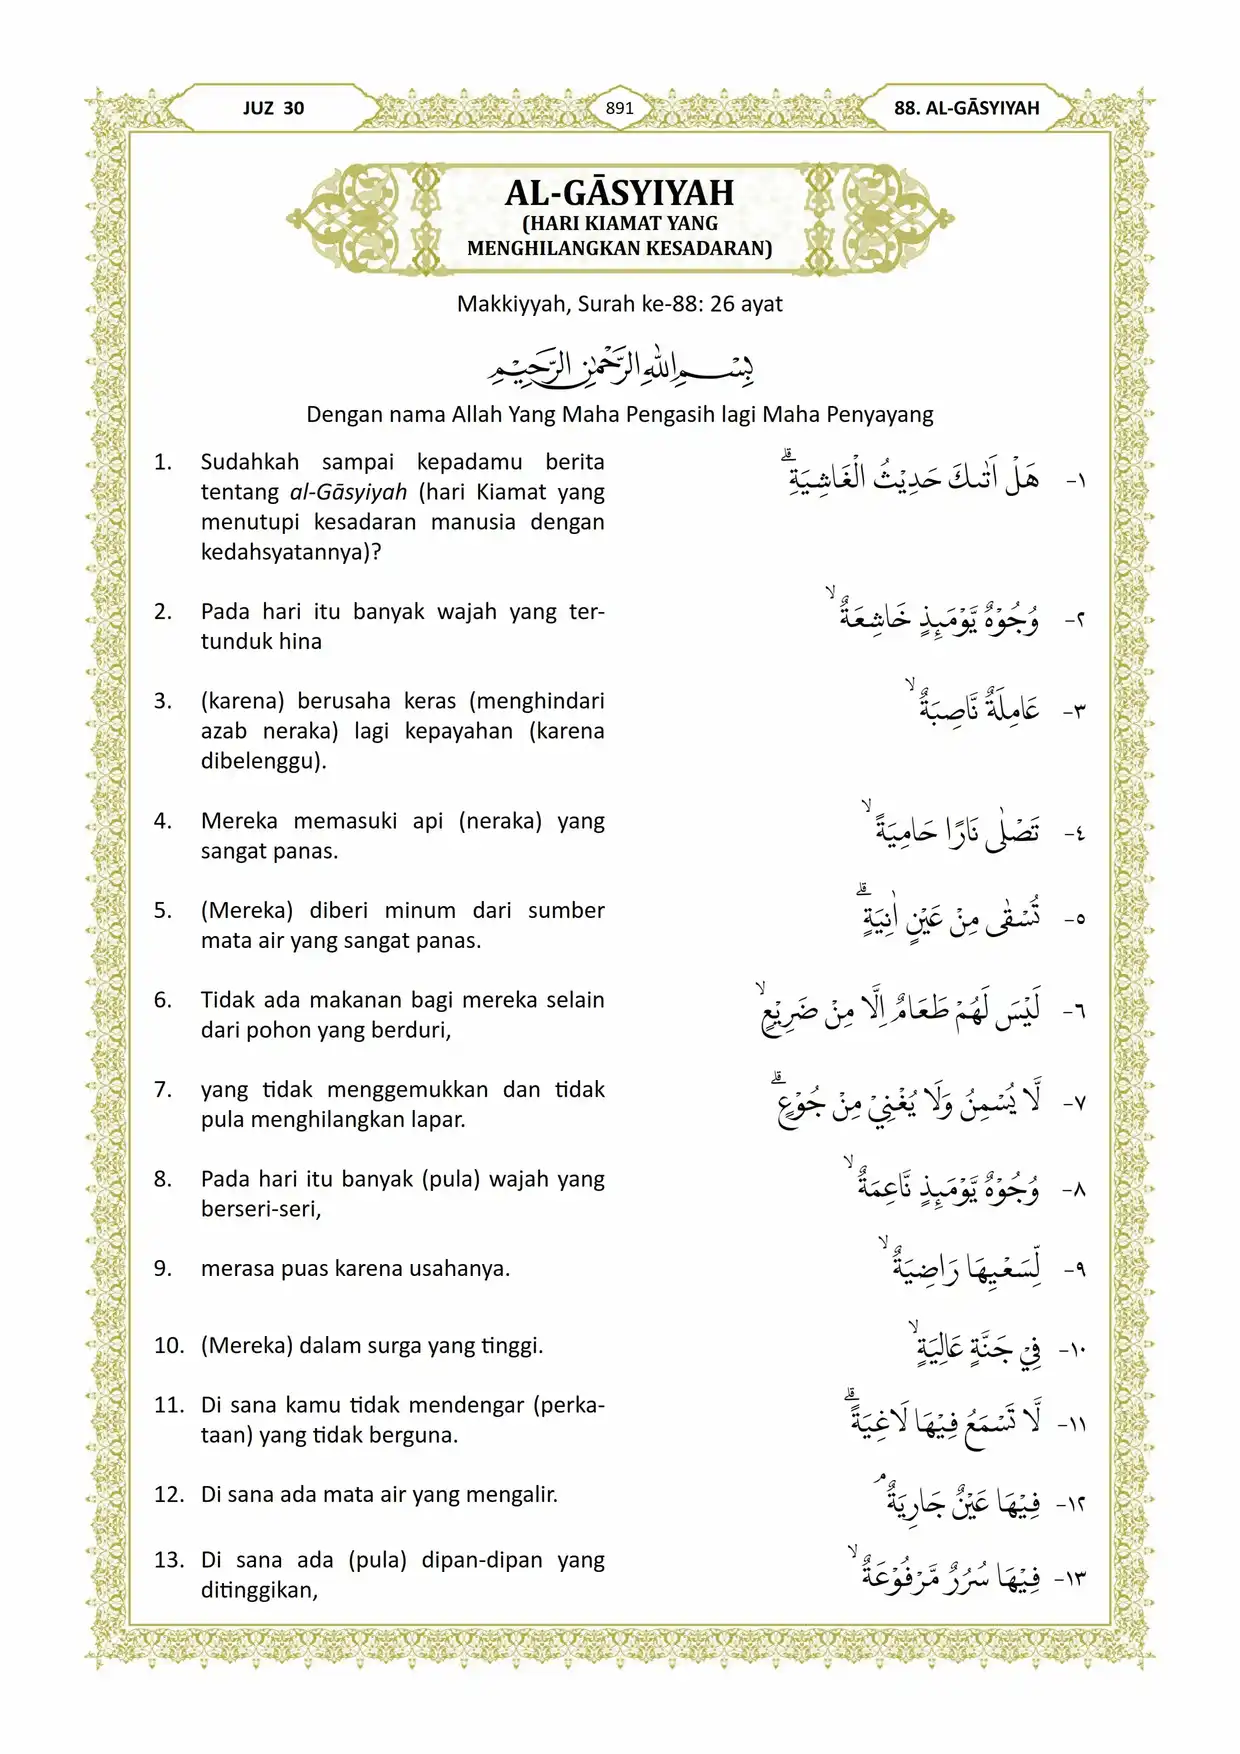 JUZ 30
891
88. AL-GĀSYIYAH
AL-GĀSYIYAH
(HARI KIAMAT YANG
MENGHILANGKAN KESADARAN)
Makkiyyah, Surah ke-88: 26 ayat
بِسْمِ اللّٰهِ الرَّحْمٰنِ الرَّحِيْمِ
Dengan nama Allah Yang Maha Pengasih lagi Maha Penyayang
1. Sudahkah sampai kepadamu berita
tentang al-Gāsyiyah (hari Kiamat yang
menutupi kesadaran manusia dengan
kedahsyatannya)?
١- هَلْ اَتٰىكَ حَدِيْثُ الْغَاشِيَةِۗ
2. Pada hari itu banyak wajah yang ter-
tunduk hina
٢- وُجُوْهٌ يَّوْمَىِٕذٍ خَاشِعَةٌ ۙ
3. (karena) berusaha keras (menghindari
azab neraka) lagi kepayahan (karena
dibelenggu).
٣- عَامِلَةٌ نَّاصِبَةٌ ۙ
4. Mereka memasuki api (neraka) yang
sangat panas.
٤- تَصْلٰى نَارًا حَامِيَةً ۙ
5. (Mereka) diberi minum dari sumber
mata air yang sangat panas.
٥- تُسْقٰى مِنْ عَيْنٍ اٰنِيَةٍ ۗ
6. Tidak ada makanan bagi mereka selain
dari pohon yang berduri,
٦- لَيْسَ لَهُمْ طَعَامٌ اِلَّا مِنْ ضَرِيْعٍۙ
7. yang tidak menggemukkan dan tidak
pula menghilangkan lapar.
٧- لَّا يُسْمِنُ وَلَا يُغْنِيْ مِنْ جُوْعٍۗ
8. Pada hari itu banyak (pula) wajah yang
berseri-seri,
٨- وُجُوْهٌ يَّوْمَىِٕذٍ نَّاعِمَةٌ ۙ
9. merasa puas karena usahanya.
٩- لِّسَعْيِهَا رَاضِيَةٌ ۙ
10. (Mereka) dalam surga yang tinggi.
١٠- فِيْ جَنَّةٍ عَالِيَةٍۙ
11. Di sana kamu tidak mendengar (perka-
taan) yang tidak berguna.
١١- لَّا تَسْمَعُ فِيْهَا لَاغِيَةًۗ
12. Di sana ada mata air yang mengalir.
١٢- فِيْهَا عَيْنٌ جَارِيَةٌۘ
13. Di sana ada (pula) dipan-dipan yang
ditinggikan,
١٣- فِيْهَا سُرُرٌ مَّرْفُوْعَةٌ ۙ